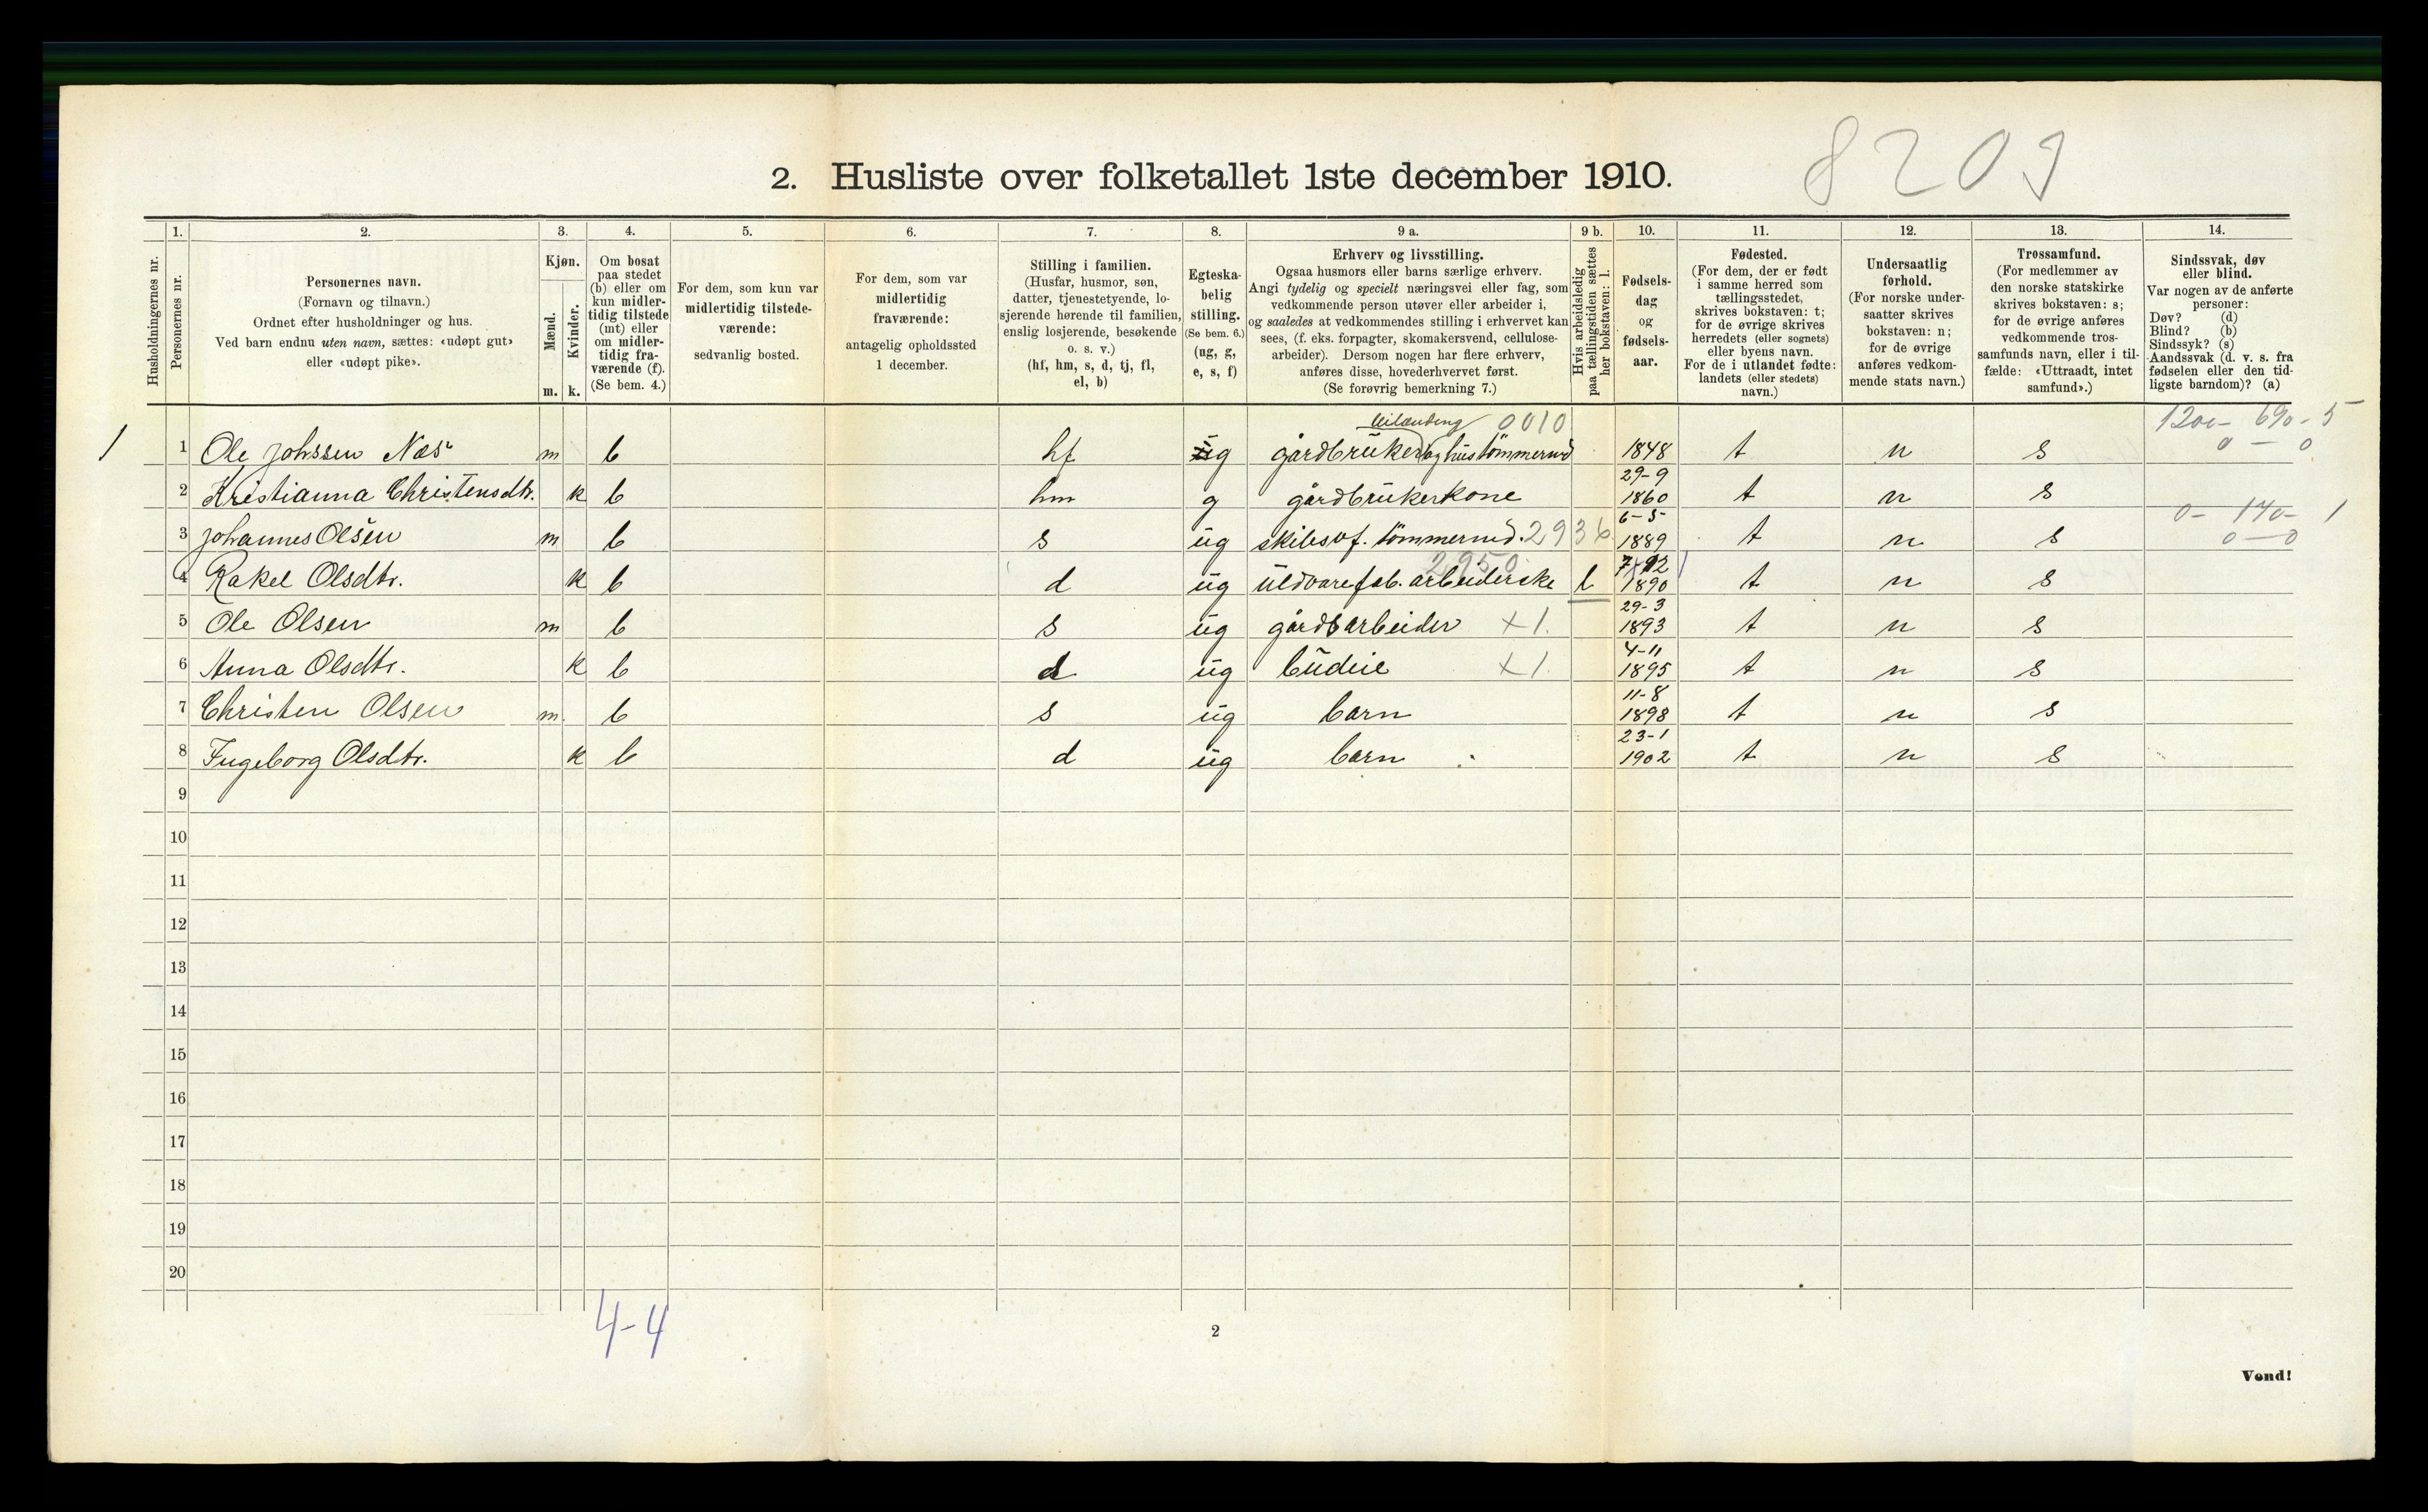 8209
2. Husliste over folketallet 1ste december 1910.
Husholdningernes nr.
1.
Personernes nr.
2.
Personernes navn.
(Fornavn og tilnavn.)
Ordnet efter husholdninger og hus.
Ved barn endnu uten navn, sættes: «udøpt gut»
eller «udøpt pike».
3.
Kjøn.
Mænd.
Kvinder.
m. k.
4.
Om bosat
paa stedet
(b) eller om
kun midler-
tidig tilstede
(mt) eller
om midler-
tidig fra-
værende (f).
(Se bem. 4.)
5.
For dem, som kun var
midlertidig tilstede-
værende:
sedvanlig bosted.
6.
For dem, som var
midlertidig
fraværende:
antagelig opholdssted
1 december.
7.
Stilling i familien.
(Husfar, husmor, søn,
datter, tjenestetyende, lo-
sjerende hørende til familien,
enslig losjerende, besøkende
o. s. v.)
(hf, hm, s, d, tj, fl,
el, b)
8.
Egteska-
belig
stilling.
(Se bem. 6.)
(ug, g,
e, s, f)
9 a.
Erhverv og livsstilling.
Ogsaa husmors eller barns særlige erhverv.
Angi tydelig og specielt næringsvei eller fag, som
vedkommende person utøver eller arbeider i,
og saaledes at vedkommendes stilling i erhvervet kan
sees, (f. eks. forpagter, skomakersvend, cellulose-
arbeider). Dersom nogen har flere erhverv,
anføres disse, hovederhvervet først.
(Se forøvrig bemerkning 7.)
9 b.
Hvis arbeidsledig
paa tællingstiden sættes
her bokstaven: l.
10.
Fødsels-
dag
og
fødsels-
aar.
11.
Fødested.
(For dem, der er født
i samme herred som
tællingsstedet,
skrives bokstaven: t;
for de øvrige skrives
herredets (eller sognets)
eller byens navn.
For de i utlandet fødte:
landets (eller stedets)
navn.)
12.
Undersaatlig
forhold.
(For norske under-
saatter skrives
bokstaven: n;
for de øvrige
anføres vedkom-
mende stats navn.)
13.
Trossamfund.
(For medlemmer av
den norske statskirke
skrives bokstaven: s;
for de øvrige anføres
vedkommende tros-
samfunds navn, eller i til-
fælde: «Uttraadt, intet
samfund».)
14.
Sindssvak, døv
eller blind.
Var nogen av de anførte
personer:
Døv? (d)
Blind? (b)
Sindssyk? (s)
Aandssvak (d. v. s. fra
fødselen eller den tid-
ligste barndom)? (a)
0010 1200- 690- 5
1 1 Ole Johssen Næs m b hf g gårdbruker og hustømmermd 1848 t n s 0 - 0
29-9
2 Kristianna Christensdtr. k b hm g gårdbrukerkone 1860 t n s
6-5 0- 170- 1
3 Johannes Olsen m b s ug skibsof. tømmermd. 2936 1889 t n s 0-0
2950 7/12
4 Rakel Olsdtr. k b d ug uldvarefab. arbeiderske l 1890 t n s
29-3
5 Ole Olsen m b s ug gårdsarbeider x1. 1893 t n s
4-11
6 Anna Olsdtr. k b d ug budeie x1. 1895 t n s
11-8
7 Christen Olsen m. b s ug barn 1898 t n s
23-1
8 Ingeborg Olsdtr. k b d ug barn 1902 t n s
9
10
11
12
13
14
15
16
17
18
19
20
4-4
2
Vend!